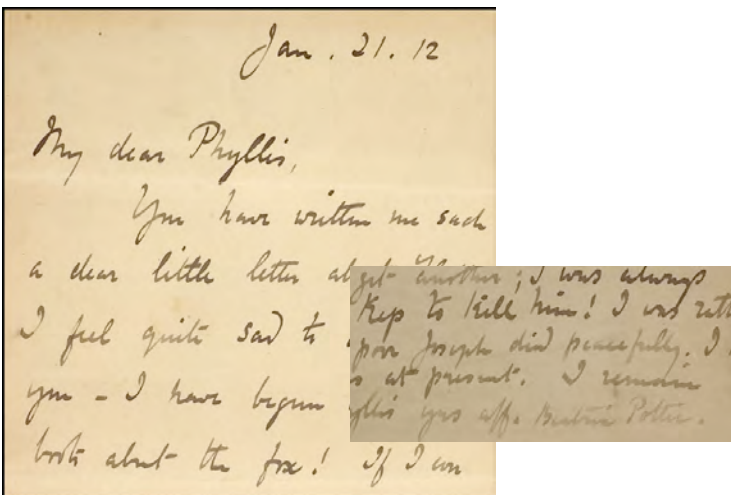 Jan. 21. 12
My dear Phyllis,
You have written me such
a dear little letter ab
I feel quite sad to
you - I have begun
book about the fox! If I
get another; I was always
Kep to kill him! I was
poor Joseph died peacefully. I
s at present. I remain
yllis yrs aff. Beatrix Potter.